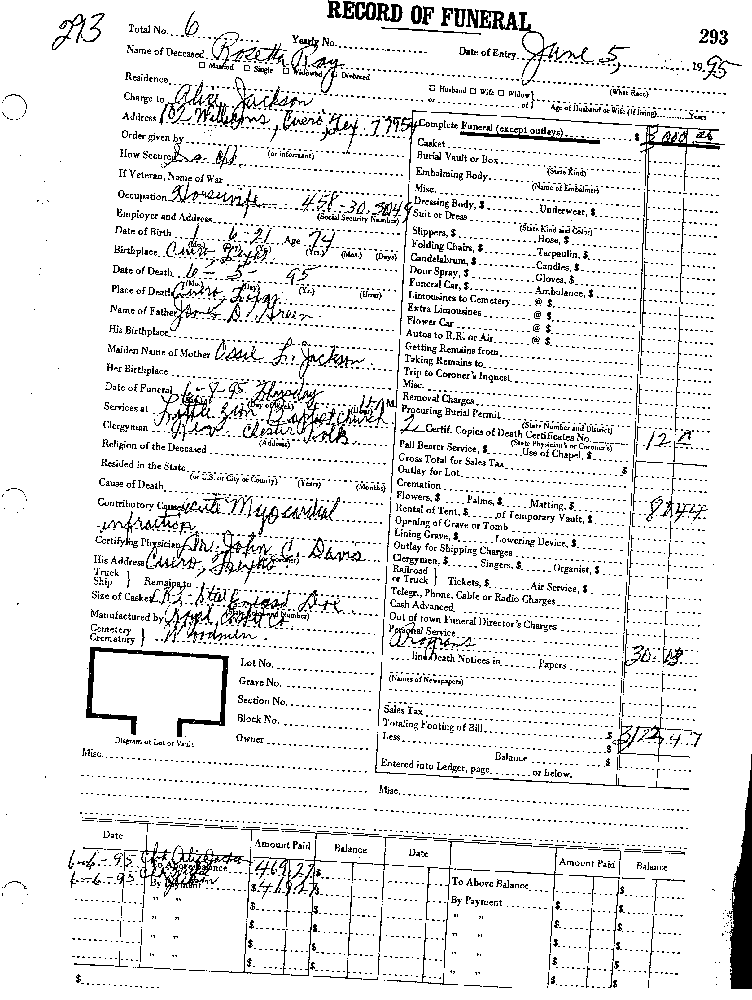 RECORD OF FUNERAL
293
293
Total No. 6
Yearly No.
Date of Entry June 5, 1995
Name of Deceased Rosetta Ray
Married Single Widowed Divorced
Husband Wife Widow
or of
(State Race)
Age of Husband or Wife (if living) Years
Residence
Charge to Alice Jackson
Address Cuero, Tex 77954
Order given by
(or informant)
How Secured
If Veteran, Name of War
Occupation Housewife
(Social Security Number)
Employer and Address
Date of Birth 1 6-21 Age 74
(Yrs.) (Mos.) (Days)
Birthplace Cuero Texas
Date of Death 6-5-95
(Yr.) (Hour)
Place of Death Cuero, Texas
Name of Father James D. Green
His Birthplace
Maiden Name of Mother Ossie L. Jackson
Her Birthplace
Date of Funeral 6-8-95 Thursday
Services at Little Zion Baptist Church
Clergyman Rev. Chester
(Address)
Religion of the Deceased
Resided in the State
(or U.S. or City or County) (Years) (Months)
Cause of Death
Contributory Cause acute Myocardial
infraction
Certifying Physician Dr. John C. Davis
His Address Cuero, Texas
Truck
Ship
Remains to
Size of Casket
Manufactured by
Cemetery
Crematory
Woodmen
Lot No.
Grave No.
Section No.
Block No.
Owner
Diagram of Lot or Vault
Misc.
Complete Funeral (except outlays) $
Casket
Burial Vault or Box
(State Kind)
Embalming Body
(Name of Embalmer)
Misc.
Dressing Body, $ Underwear, $
Suit or Dress
(State Kind and Color)
Slippers, $ Hose, $
Folding Chairs, $ Tarpaulin, $
Candelabrum, $ Candles, $
Door Spray, $ Gloves, $
Funeral Car, $ Ambulance, $
Limousines to Cemetery @ $
Extra Limousines @ $
Flower Car @ $
Autos to R.R. or Air @ $
Getting Remains from
Taking Remains to
Trip to Coroner's Inquest
Misc.
Removal Charges
Procuring Burial Permit
(State Number and District)
2 Certif. Copies of Death Certificates No.
(State Physician's or Coroner's)
Pall Bearer Service, $ Use of Chapel, $
Gross Total for Sales Tax $
Outlay for Lot
Cremation
Flowers, $ Palms, $ Matting, $
Rental of Tent, $ of Temporary Vault, $
Opening of Grave or Tomb
Lining Grave, $ Lowering Device, $
Outlay for Shipping Charges
Clergymen, $ Singers, $ Organist, $
Railroad
or Truck
Tickets, $ Air Service, $
Telegr., Phone, Cable or Radio Charges
Cash Advanced
Out of town Funeral Director's Charges
Personal Service
Programs
line Death Notices in Papers
(Names of Newspapers)
Sales Tax
Totaling Footing of Bill $
Less $
Balance $
Entered into Ledger, page or below.
Misc.
Date Amount Paid Balance Date Amount Paid Balance
6-6-95
To Above Balance 469.27 $
6-6-95
By Payment $
To Above Balance $
By Payment $